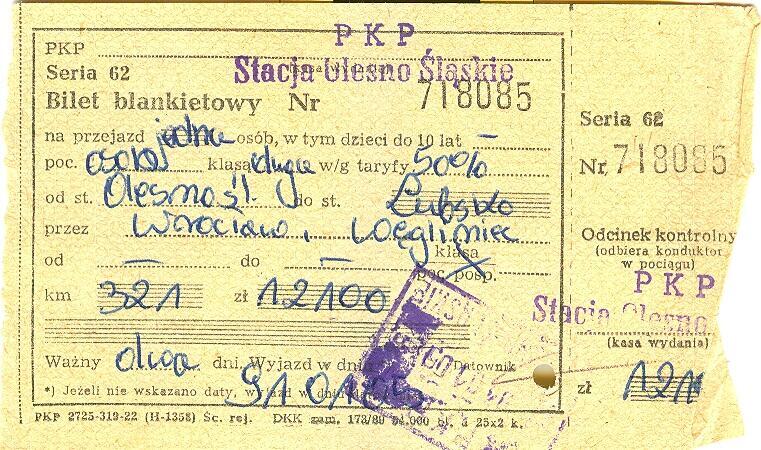 PKP
Stacja Olesno Śląskie
PKP
Seria 62
Bilet blankietowy Nr 718085
na przejazd jedna osób, w tym dzieci do 10 lat —
poc. osobo klasą druga w/g taryfy 50%
od st. Olesno śl. do st. Lubsko
przez Wrocław, Węgliniec
klasa
od — do —
poc. posp.
km 321 zł 12100
Ważny dwa dni. Wyjazd w dniu Datownik
*) Jeżeli nie wskazano daty, wyjazd w dniu
PKP 2725-319-22 (H-1358) Śc. rej. DKK zam. 173/89 bl. a 25x2 k.
Seria 62
Nr 718085
Odcinek kontrolny
(odbiera konduktor
w pociągu)
PKP
Stacja Olesno
(kasa wydania)
zł 121